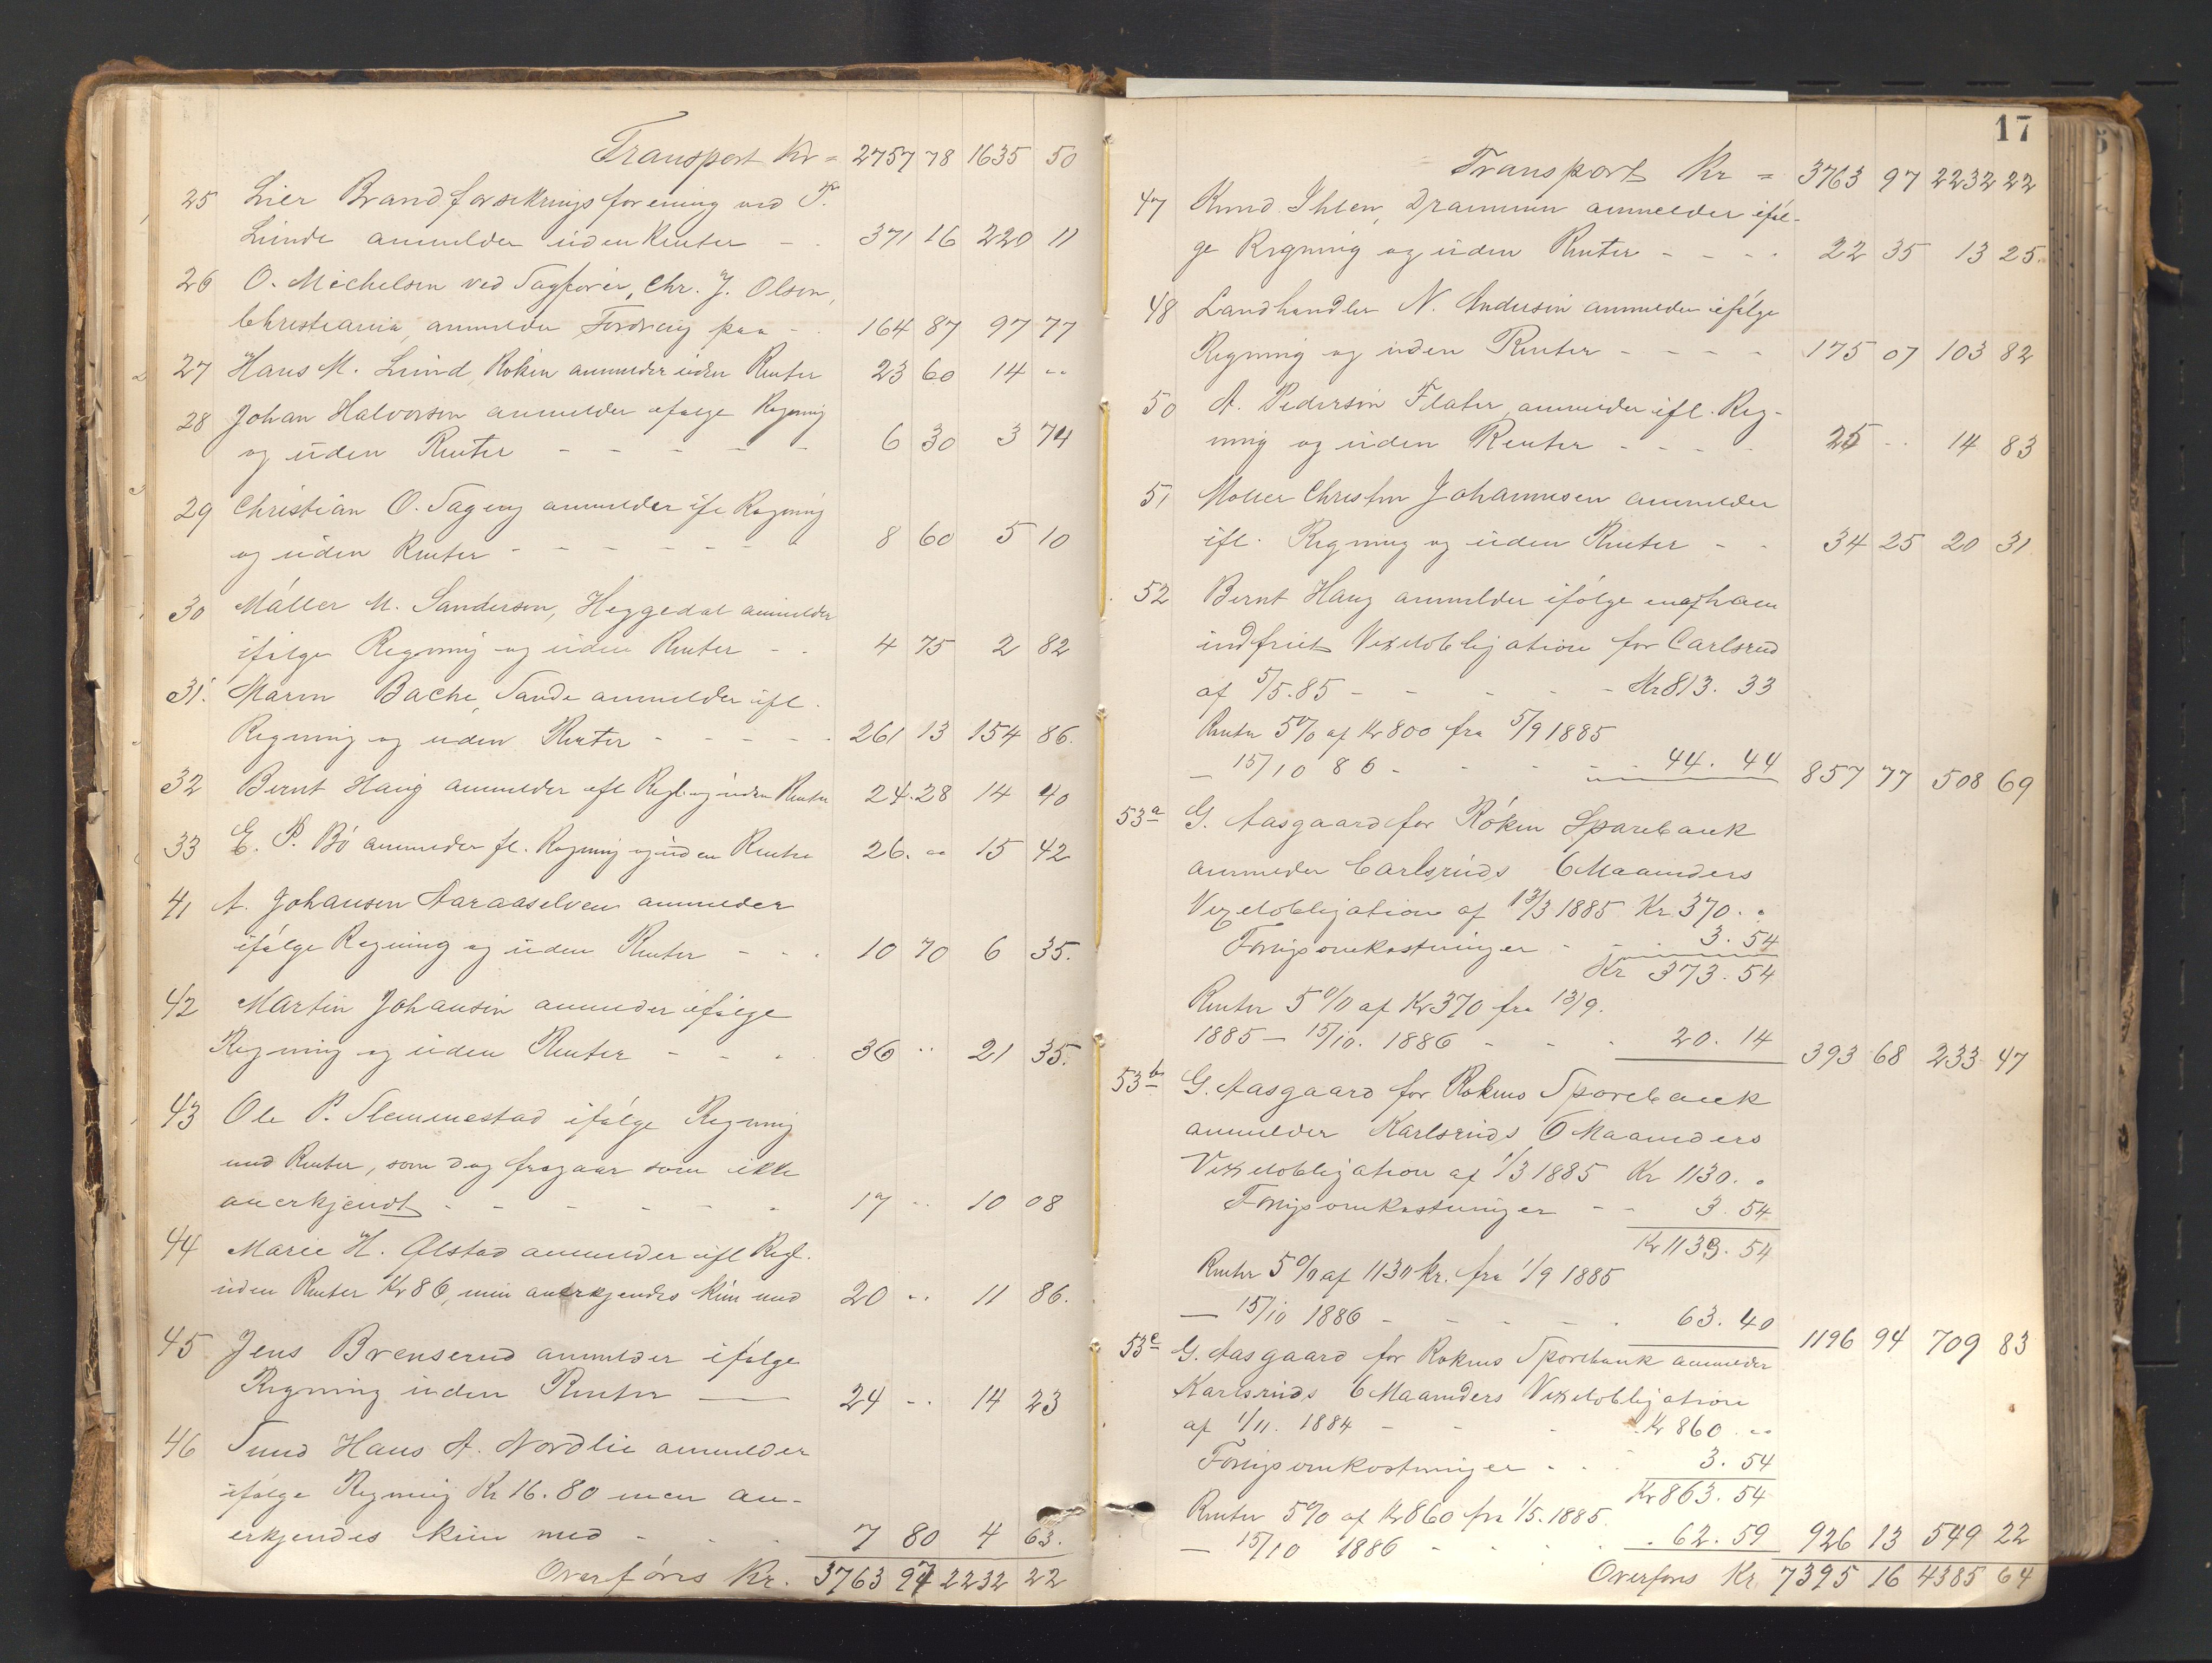 Transport Kr = 2757 78 1635 50
25 Lier Brandforsikringsforening ved F.
Lunde anmelder uden Renter - - 371 16 220 11
26 O. Michelsen ved Sagfører, Chr. J. Olsen,
Christiania, anmelder Fordring paa - 164 87 97 77
27 Hans M. Lund Röken anmelder uden Renter 23 60 14 "
28 Johan Halvorsen anmelder ifølge Regning
og uden Renter - - - - - 6 30 3 74
29 Christian O. Sageng anmelder ifl Regning
og uden Renter - - - - - - 8 60 5 10
30 Möller M. Sanderson, Heggedal anmelder
ifølge Regning og uden Renter - - 4 75 2 82
31. Maren Bache, Sande anmelder ifl.
Regning og uden Renter - - - - - 261 13 154 86.
32 Bernt Haug anmelder ifl Regl. og uden Renter 24.28 14 40
33 E. P. Bö anmelder fl. Regning og uden Renter 26. " 15 42
41 A. Johansen Aaraaselven anmelder
ifølge Regning og uden Renter - - - 10 70 6 35.
42 Martin Johansen anmelder ifølge
Regning og uden Renter - - - - 36 " 21 35.
43 Ole P. Slemmestad ifølge Regning
med Renter, som dog fragaar som ikke
anerkjendt - - - - - - 17 " 10 08
44 Marie H. Ølstad anmelder ifl Regl.
uden Renter Kr 86, men anerkjendes kun med 20 " 11 86.
45 Jens Brenserud anmelder ifølge
Regning uden Renter — 24 " 14 23
46 Hans A. Nordlie anmelder
ifølge Regning Kr 16.80 men an-
erkjendes kun med - - - 7 80 4 63.
Overføres Kr. 3763 97 2232 22
17
Transport Kr = 3763 97 2232 22
47 Knud Ihlen, Drammen anmelder iføl-
ge Regning og uden Renter - - - - 22 35 13 25.
48 Landhandler N. Andersen anmelder ifølge
Regning og uden Renter - - - - 175 07 103 82
50 A. Pedersen Flater, anmelder ifl. Reg-
ning og uden Renter - - - - 25 " 14 83
51 Möller Christen Johannesen anmelder
ifl. Regning og uden Renter - - 34 25 20 31
52 Bernt Haug anmelder ifølge en af ham
indfriet Vexelobligation for Carlsrud
af 5/5.85 - - - - - Kr 813. 33
Renter 5% af Kr 800 fra 5/9 1885
— 15/10 86 - - - - - 44. 44 857 77 508 69
53a G. Aasgaard for Röken Sparebank
anmelder Carlsruds 6 Maaneders
Vexelobligation af 13/3 1885 Kr. 370. "
Forrigs omkostninger - - - 3. 54
Kr 373. 54
Renter 5% af Kr 370 fra 13/9.
1885 — 15/10. 1886 - - - 20. 14 393 68 233 47
53b G. Aasgaard for Rökens Sparebank
anmelder Karlsruds 6 Maaneders
Vexelobligation af 1/3 1885 Kr 1130. "
Forrigs omkostninger - - 3. 54
Kr 1133. 54
Renter 5% af 1130 Kr. fra 1/9 1885
— 15/10 1886 - - - - - 63. 40 1196 94 709 83
53c G. Aasgaard for Rökens Sparebank anmelder
Karlsruds 6 Maaneders Vexelobligation
af 1/11. 1884 - - - Kr 860. "
Forrigs omkostninger - - - 3. 54
Kr 863. 54
Renter 5% af Kr 860 fra 1/5. 1885.
— 15/10 1886 - - - - - 62. 59 926 13 549 22
Overføres Kr. 7395 16 4385 64